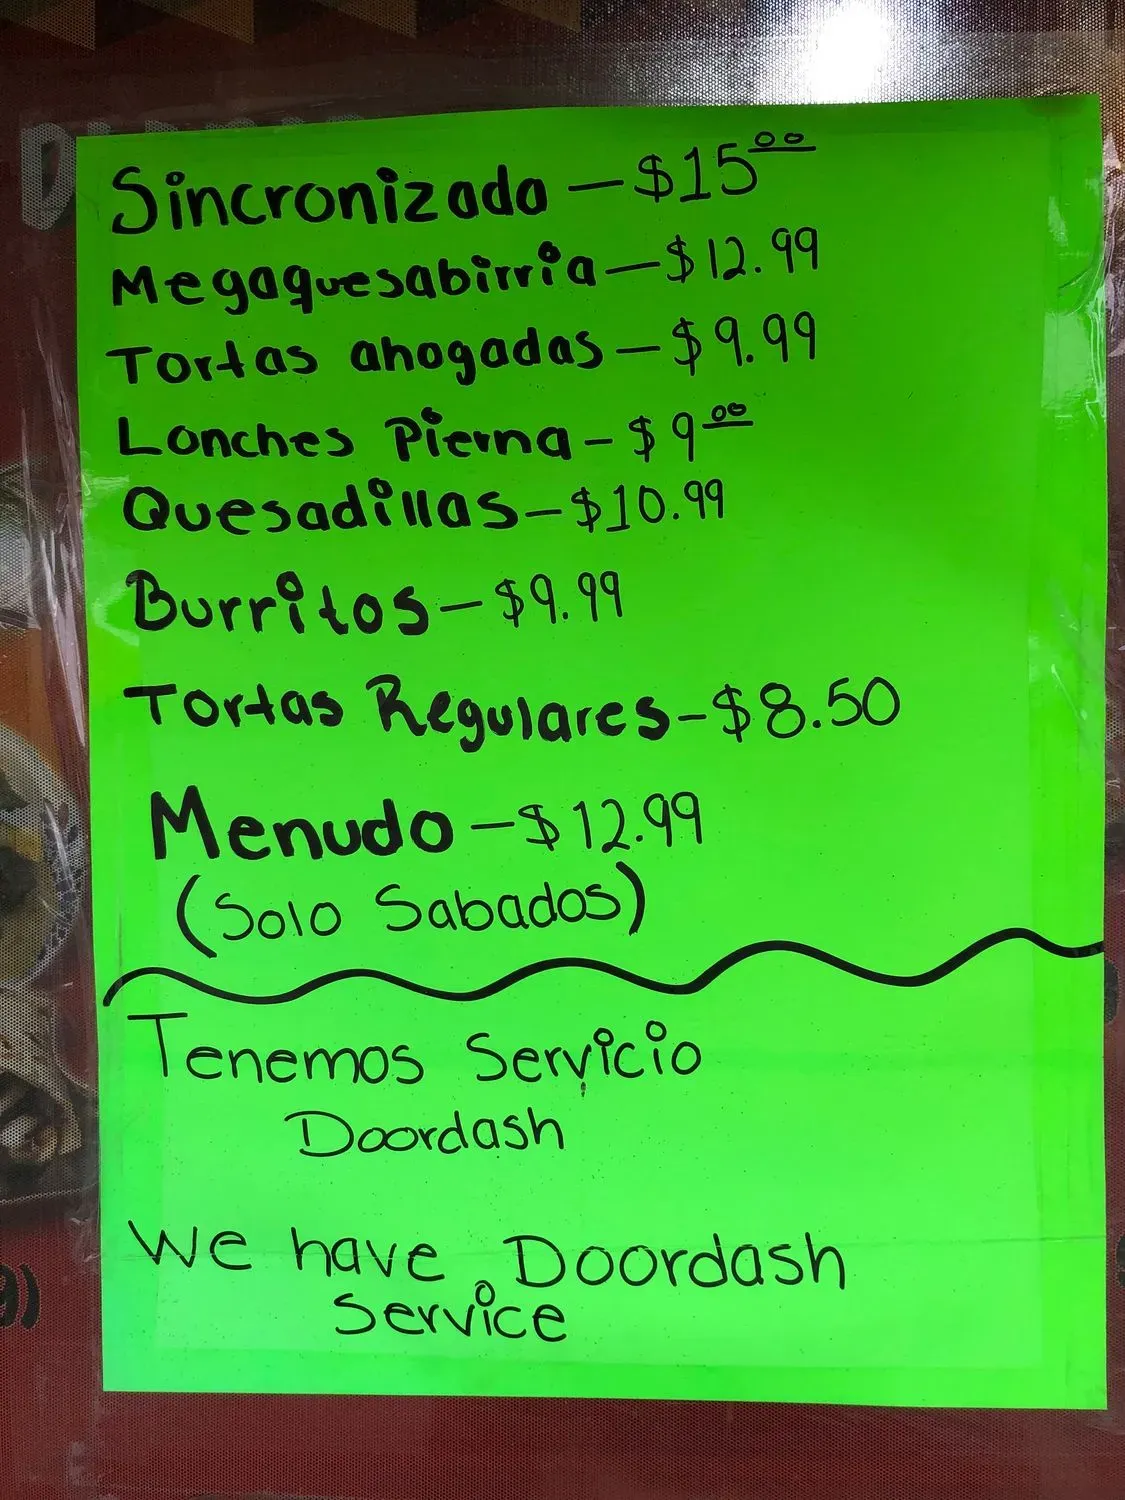 Sincronizada — $15.00
Megaquesabirria — $12.99
Tortas ahogadas — $9.99
Lonches Pierna - $9.00
Quesadillas - $10.99
Burritos — $9.99
Tortas Regulares - $8.50
Menudo — $12.99
(Solo Sabados)
Tenemos Servicio
Doordash
We have Doordash
Service